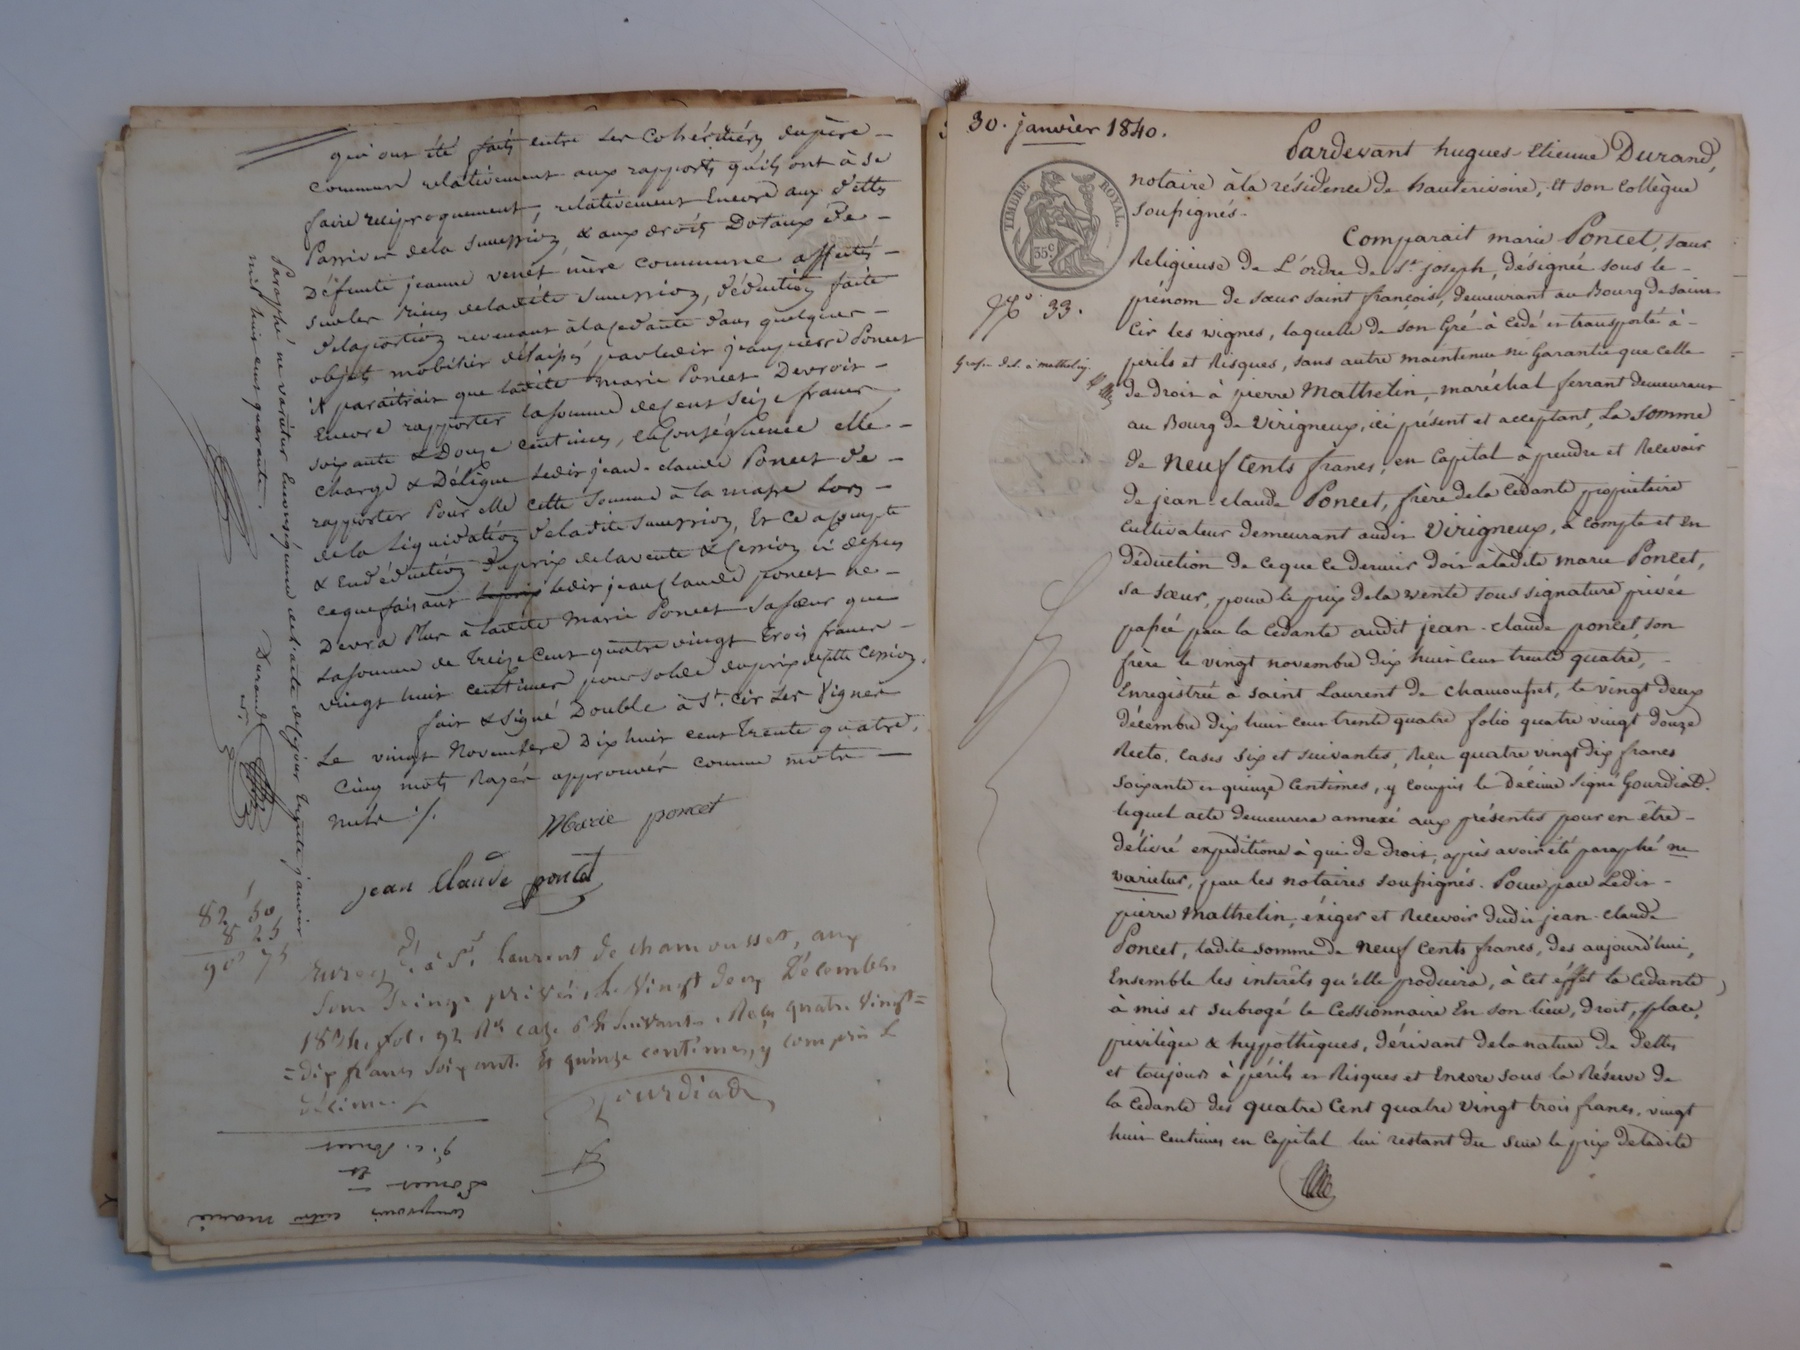 qui ont été faits entre les cohéritiers du père
commun relativement aux rapports qu'ils ont à se
faire réciproquement, relativement Encore aux dettes
Passives de la succession, & aux droits Dotaux de
Défunte jeanne venet mère commune affectés
sur les biens de ladite succession, déduction faite
de la portion revenant à la cédante dans quelques
objets mobilier délaissés par ledit jean pierre Poncet
il paraîtrait que ladite Marie Poncet Devroit
Encore rapporter la somme de cent seize francs
soixante & Douze centimes, En Conséquence elle
charge & Délègue ledit jean-claude Poncet de
rapporter Pour elle cette somme à la masse lors
de la Liquidation de ladite succession, Et ce acompte
& en déduction du prix de la vente & Cession ci dessus
ce que faisant ledit jean Claude poncet ne
Devra Plus à ladite Marie Poncet sa sœur que
la somme de Treize Cent quatre vingt trois francs
vingt huit centimes pour solde du prix de cette cession.
fait & signé Double à St. Cir Les Vignes
Le vingt Novembre Dix huit cent trente quatre.
Cinq mots Rayés approuvés comme mots
nuls ./.
Marie poncet
jean Claude poncet
82 50
8 25
90 75
Enregé. à St. Laurent de chamousset, aux
sous seings privés, le vingt deux Décembre
1834. fol. 92 Ro. case 6 & suivants. Reçu quatre vingt=
=dix francs soixante & quinze centimes, y compris le
décime
Gourdiat
compromis entre marie
Poncet =
et
j. c. Poncet
Paraphé ne varietur En conséquence de l'acte de ce jour trente janvier
mil huit cent quarante.
Durand
30. janvier 1840.
TIMBRE ROYAL
35 c
No 33.
Pardevant hugues-Etienne Durand,
notaire à la résidence de hauterivoire, et son collègue
soussignés.
Comparait marie Poncet, sœur
Religieuse de L'ordre de St joseph, désignée sous le
prénom de sœur saint françois, demeurant au Bourg de saint
Cir les vignes, laquelle de son Gré à Cédé et transporté à
périls et Risques, sans autre maintenue ni Garantie que celle
de droit à pierre Mathelin, maréchal ferrant demeurant
au Bourg de Virigneux, ici présent et acceptant, La somme
de neuf Cents francs, en Capital à prendre et Recevoir
de jean-claude Poncet, frère de la Cédante propriétaire
Cultivateur demeurant audit Virigneux, à compte et en
déduction de ce que ce dernier doit à ladite marie Poncet,
sa sœur, pour le prix de la vente sous signature privée
passée par la Cédante audit jean-claude poncet, son
frère le vingt novembre dix huit cent trente quatre,
Enregistrée à saint Laurent de chamousset, le vingt deux
décembre dix huit cent trente quatre folio quatre vingt douze
Recto. Cases six et suivantes, Reçu quatre vingt dix francs
soixante et quinze Centimes, y compris le décime signé Gourdiat.
lequel acte demeurera annexé aux présentes pour en être
délivré expéditions à qui de droit, après avoir été paraphé ne
varietur, par les notaires soussignés. Pour par Ledit
pierre Mathelin, éxiger et Recevoir dudit jean-claude
Poncet, ladite somme de neuf Cents francs, dès aujourd'hui,
Ensemble les intérêts qu'elle produira, à cet éffet la Cédante
à mis et subrogé le Cessionnaire En son lieu, droit, place,
privilège & hypothèques, dérivant de la nature de dettes
et toujours à périls et Risques et Encore sous la Réserve de
la Cédante des quatre Cent quatre vingt trois francs, vingt
huit centimes en Capital lui restant du sur le prix de ladite